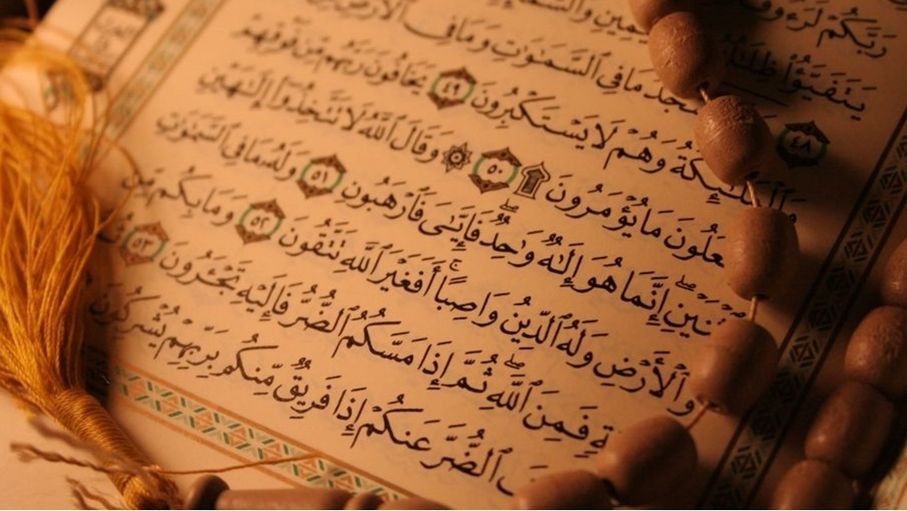 رَبَّكُمْ
يَتَفَيَّؤُا۟ ظِلَٰلُهُ
٤٨ مَا فِى ٱلسَّمَٰوَٰتِ وَمَا فِى ٱلْأَرْضِ
وَٱلْمَلَٰٓئِكَةُ وَهُمْ لَا يَسْتَكْبِرُونَ ٤٩ يَخَافُونَ رَبَّهُم مِّن فَوْقِهِمْ
مَا يُؤْمَرُونَ ۩ ٥٠ ۞ وَقَالَ ٱللَّهُ لَا تَتَّخِذُوٓا۟ إِلَٰهَيْنِ
ٱثْنَيْنِ ۖ إِنَّمَا هُوَ إِلَٰهٌ وَٰحِدٌ ۖ فَإِيَّٰىَ فَٱرْهَبُونِ ٥١ وَلَهُۥ مَا فِى ٱلسَّمَٰوَٰتِ
وَٱلْأَرْضِ وَلَهُ ٱلدِّينُ وَاصِبًا ۚ أَفَغَيْرَ ٱللَّهِ تَتَّقُونَ ٥٢ وَمَا بِكُم مِّن
فَمِنَ ٱللَّهِ ۖ ثُمَّ إِذَا مَسَّكُمُ ٱلضُّرُّ فَإِلَيْهِ تَجْـَٔرُونَ ٥٣
ٱلضُّرَّ عَنكُمْ إِذَا فَرِيقٌ مِّنكُم بِرَبِّهِمْ يُشْرِكُونَ